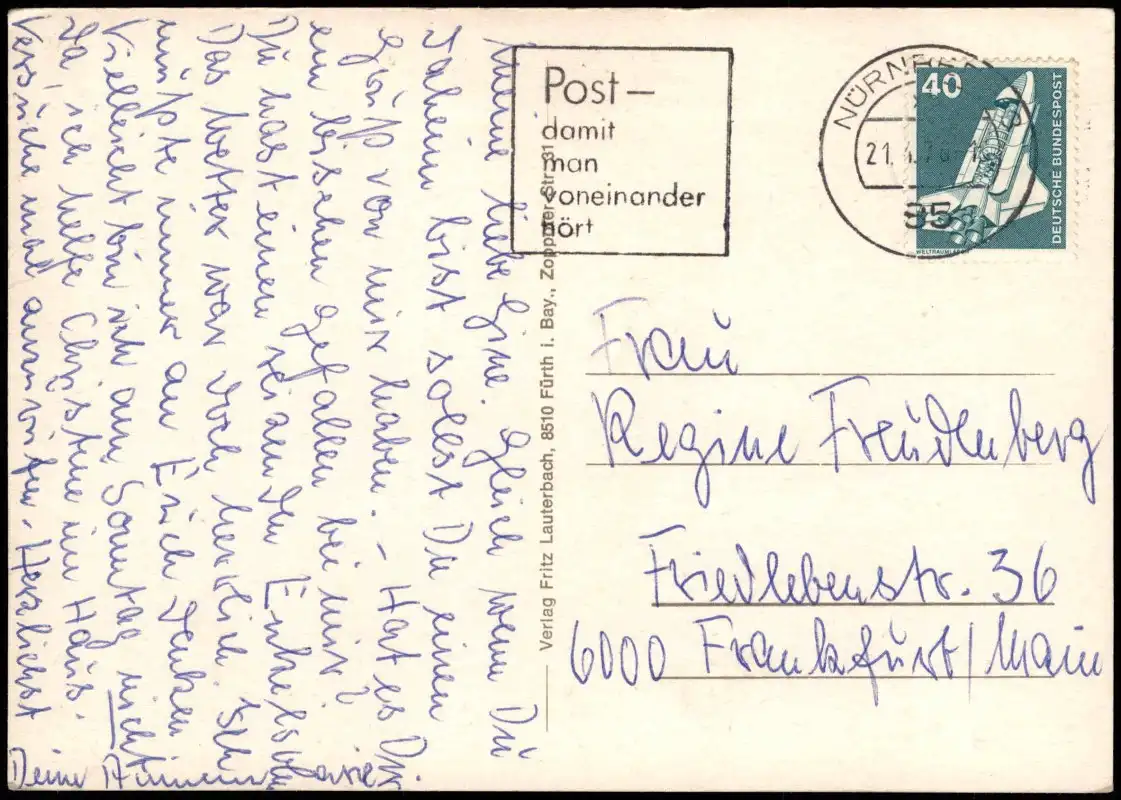 Meine liebe Gine. Gleich wenn Du
daheim bist sollst Du einen
Gruß von mir haben. – Hat es Dir
ein bisschen gefallen bei mir?
Du hast einen reizenden Enkelsohn
Das Wetter war doch herrlich. Ich
müßte immer an Erich denken
Vielleicht bin ich am Sonntag nicht
da, ich helfe Christine im Haus.
Versuche mal anzurufen. Herzlichst
Deine
Post –
damit
man
voneinander
hört
NÜRNBERG
21.
85
40
DEUTSCHE BUNDESPOST
Verlag Fritz Lauterbach, 8510 Fürth i. Bay., Zoppoter Str. 31
Frau
Regine Freudenberg
Friedlebenstr. 36
6000 Frankfurt/Main